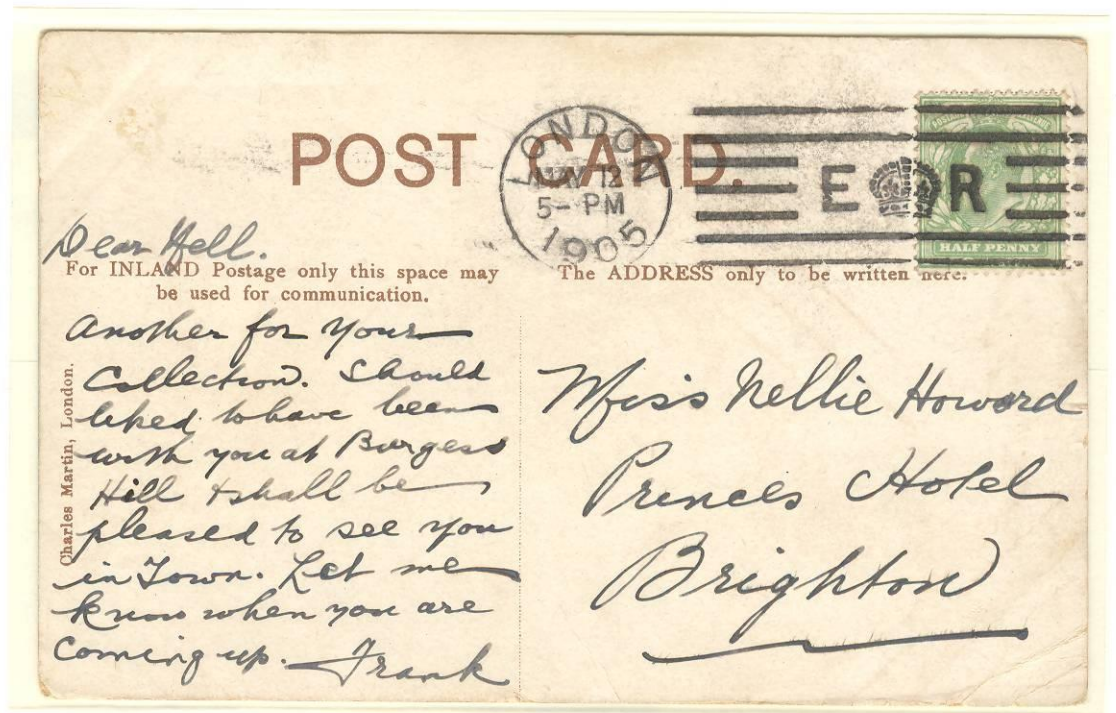 POST CARD.
LONDON
MAY 12
5- PM
1905
E R
HALF PENNY
Dear Nell.
For INLAND Postage only this space may
be used for communication.
The ADDRESS only to be written here.
Another for your
Collection. Should
liked to have been
with you at Burgess
Hill & shall be
pleased to see you
in Town. Let me
know when you are
coming up. Frank
Charles Martin, London.
Miss Nellie Howard
Princes Hotel
Brighton